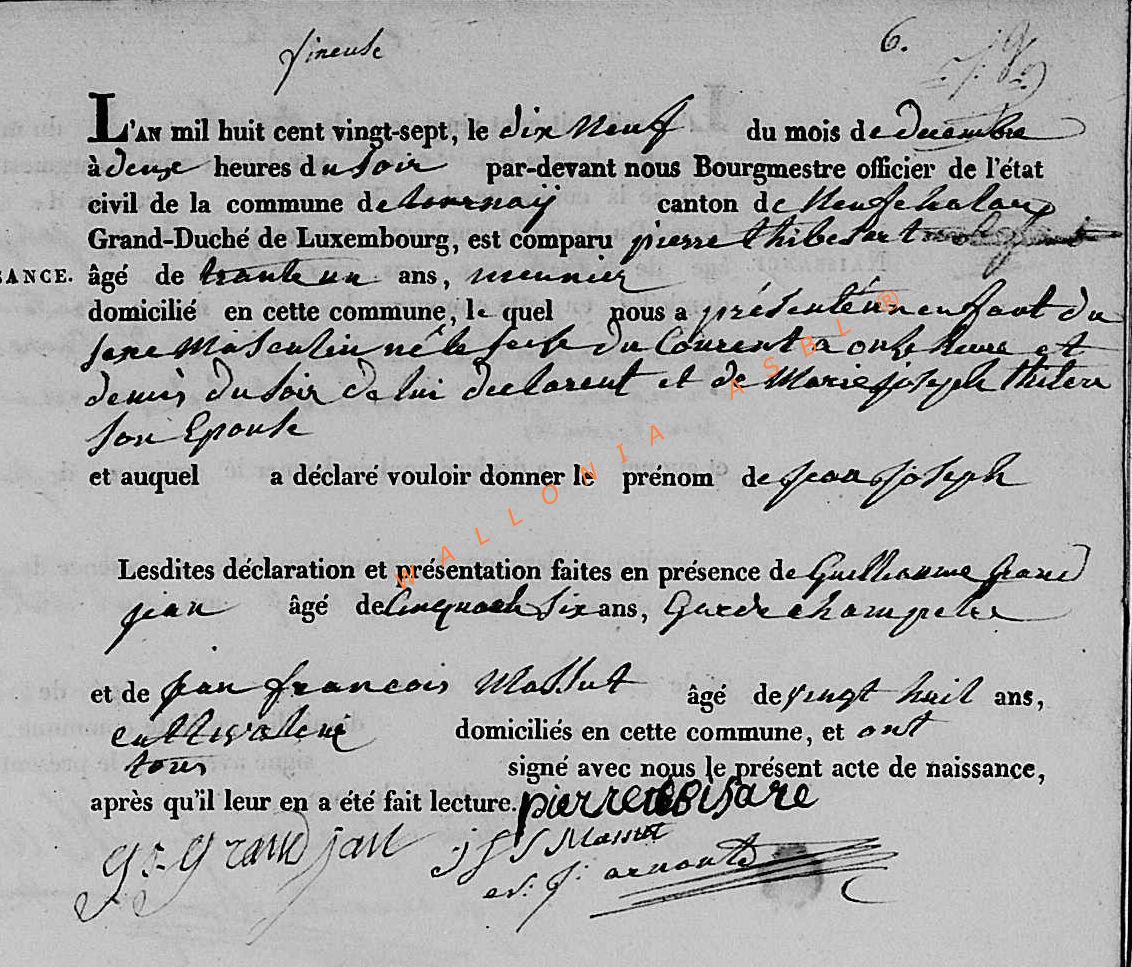 fineuse
6.
L'AN mil huit cent vingt-sept, le dix neuf du mois de decembre
à deux heures du soir par-devant nous Bourgmestre officier de l'état
civil de la commune de tournaÿ canton de Neufchateau
Grand-Duché de Luxembourg, est comparu pierre thibesart
SANCE. âgé de trante un ans, meunier
domicilié en cette commune, le quel nous a présenté un enfant du
sexe Masculin né le seise du Courent a onse heure et
demis du soir de lui declarent et de Marie joseph
son Epouse
et auquel a déclaré vouloir donner le prénom de jean joseph
Lesdites déclaration et présentation faites en présence de Guilliaume grand
jean âgé de cinquante six ans, Garde champetre
et de jean francois Massut âgé de vingt huit ans,
cultivateur domiciliés en cette commune, et ont
tous signé avec nous le présent acte de naissance,
après qu'il leur en a été fait lecture. pierre
g: grandjean j f s Massut
arnould
WALLONIA ASBL ®